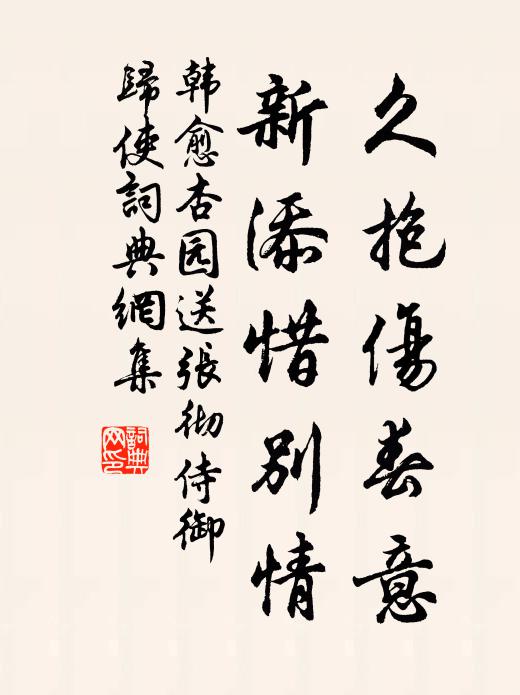 久抱傷春意
新添惜別情
韩愈杏园送張彻侍御
歸使詞典網集
詞典
网印